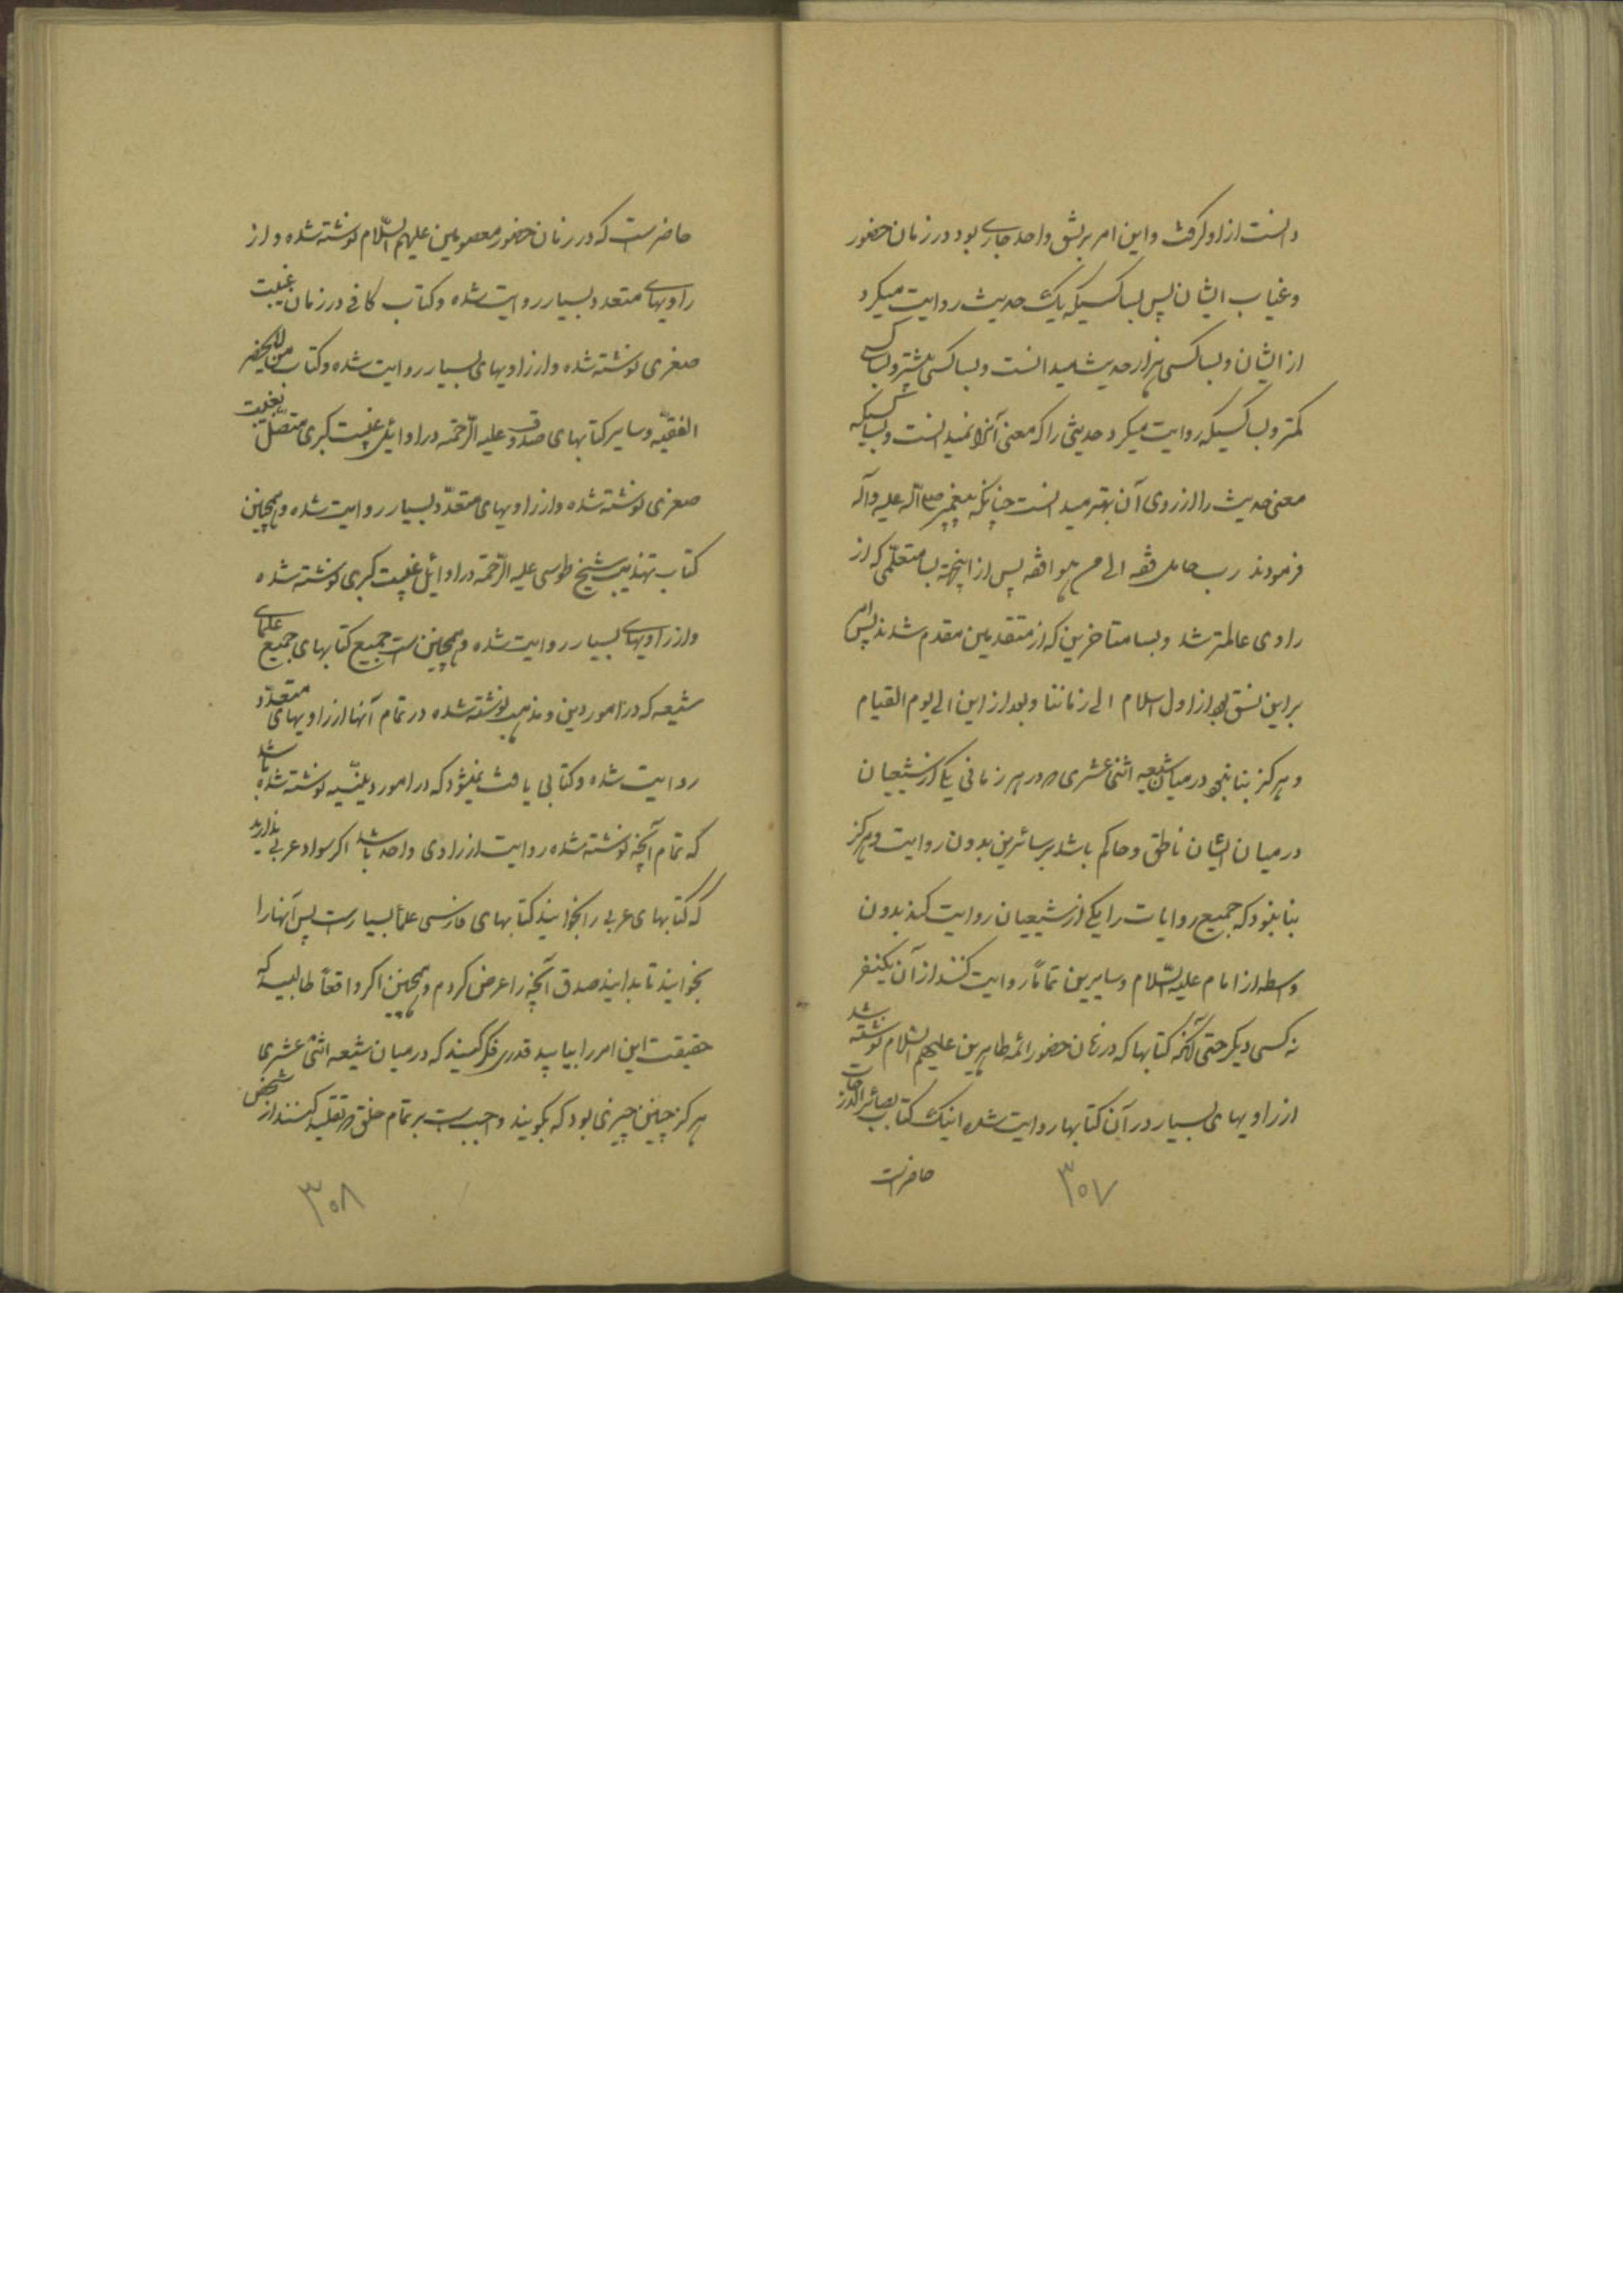 دانست از او گرفت و این امر بر نسق واحد جاری بود در زمان حضور
و غیاب ایشان پس بسا کسیکه یک حدیث روایت میکرد
از ایشان و بسا کسی هزار حدیث میدانست و بسا کسی بیشتر و بسا کسی
کمتر و بسا کسیکه روایت میکرد حدیثی را که معنی آنرا نمیدانست و بسا کسیکه
معنی حدیث را از راوی آن بهتر میدانست چنانکه پیغمبر صلی الله علیه و آله
فرمودند رب حامل فقه الی من هو افقه پس از اینجهة بسا متعلمی که از
راوی عالمتر شد و بسا متاخرین که از متقدمین مقدم شدند پس امر
بر این نسق بود از اول اسلام الی زماننا و بعد از این الی یوم القیام
و هرگز بنا نبود در میان شیعه اثنی عشری که در هر زمانی یکی از شیعیان
در میان ایشان ناطق و حاکم باشد بر سائرین بدون روایت و هرگز
بنا نبود که جمیع روایات را یکی از شیعیان روایت کند بدون
واسطه از امام علیه السّلام و سایرین تماماً روایت کنند از آن یکنفر
نه کسی دیگر حتی آنکه کتابها که در زمان حضور ائمه طاهرین علیهم السّلام نوشته شد
از راویهای بسیار در آن کتابها روایت شده اینک کتاب بصائر الدرجات
حاضر است
۳۰۷
حاضر است که در زمان حضور معصومین علیهم السّلام نوشته شده و از
راویهای متعدد بسیار روایت شده و کتاب کافی در زمان غیبت
صغری نوشته شده و از راویهای بسیار روایت شده و کتاب من لایحضر
الفقیه و سایر کتابهای صدوق علیه الرّحمة در اوائل غیبت کبری متصّل بغیبت
صغری نوشته شده و از راویهای متعدّد بسیار روایت شده و همچنین
کتاب تهذیب شیخ طوسی علیه الرّحمة در اوائل غیبت کبری نوشته شده
و از راویهای بسیار روایت شده و همچنین است جمیع کتابهای جمیع علمای
شیعه که در امور دین و مذهب نوشته شده در تمام آنها از راویهای متعدّد
روایت شده و کتابی یافت نمیشود که در امور دینیّه نوشته شده باشد
که تمام آنچه نوشته شده روایت از راوی واحد باشد اگر سواد عربی ندارید
که کتابهای عربی را بخوانید کتابهای فارسی علما بسیار است پس آنها را
بخوانید تا بدانید صدق آنچه را عرض کردم و همچنین اگر واقعاً طالبید که
حقیقت این امر را بیابید قدری فکر کنید که در میان شیعه اثنی عشری
هرگز چنین چیزی بود که بگویند واجب است بر تمام خلق که تقلید کنند از شخص
۳۰۸